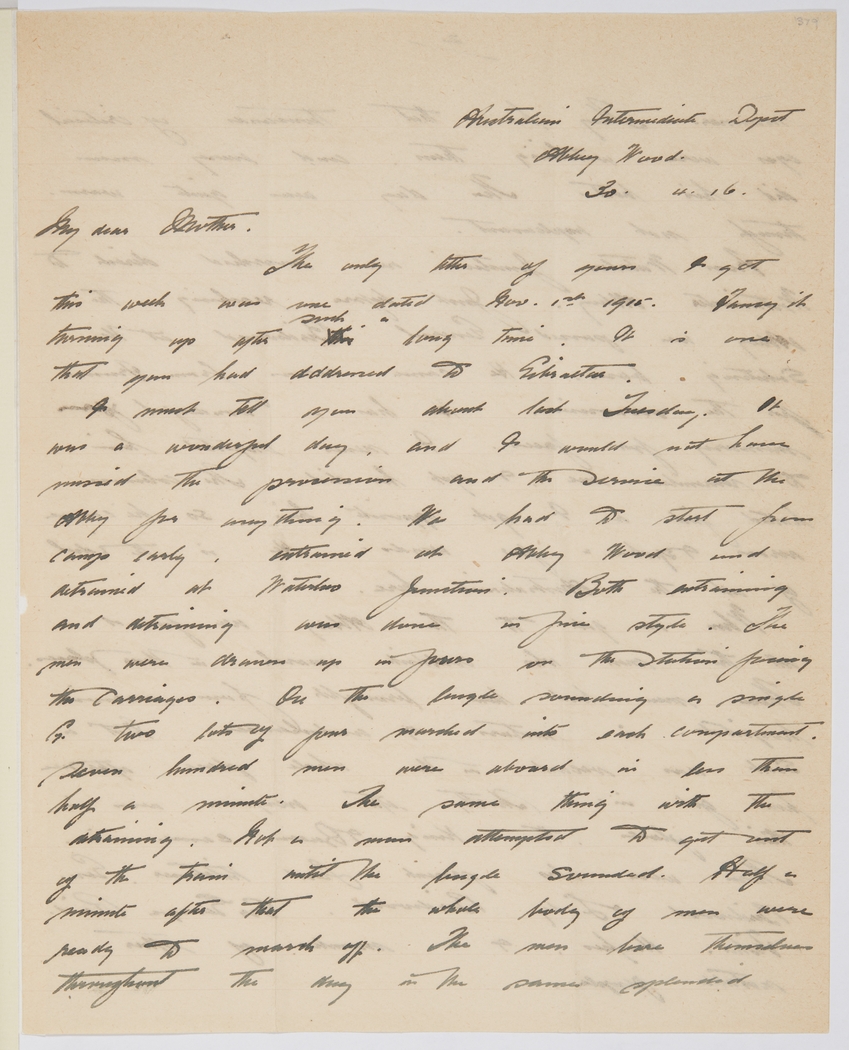 379
Australian Intermediate Depot
Abbey Wood.
30. 4. 16.
My dear Mother.
The only letter of yours I got
this week was one dated Nov. 1st 1915. Fancy it
turning up after such a long time. It is one
that you had addressed to Gibraltar.
I must tell you about last Tuesday. It
was a wonderful day, and I would not have
missed the procession and the service at the
Abbey for anything. We had to start from
camp early, entrained at Abbey Wood and
detrained at Waterloo Junction. Both entraining
and detraining was done in fine style. The
men were drawn up in fours on the station facing
the carriages. On the bugle sounding a single
G. two lots of four marched into each compartment.
Seven hundred men were aboard in less than
half a minute. The same thing with the
detraining. Not a man attempted to get out
of the train until the bugle sounded. Half a
minute after that the whole body of men were
ready to march off. The men bore themselves
throughout the day in the same splendid